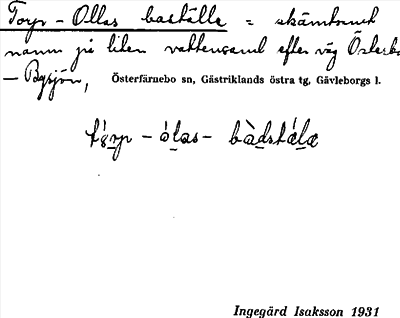 Torp - Ollas baställe = skämtsamt
namn på liten vattensaml efter väg Österbo
- Bysjön,
Österfärnebo sn, Gästriklands östra tg, Gävleborgs l.
tɷ́rp - óḷas - bàdstálæ
Ingegärd Isaksson 1931